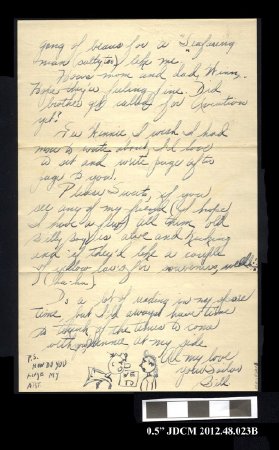 gang of beaus for a "Seafaring
man (salty too) like me.
Hows mom and dad, Hunn.
Hope they're feeling fine. Did
brother get called for Operation
yet?
Gee Winnie I wish I had
more to write about, I'd love
to sit and write page after
page to you.
Please Sweet, if you
see any of my friends (I hope
I have a few) tell them old
Billy boy is alive and kicking
and if they'd like a couple
I yellow for souvenirs, well!!
(Ha-ha)
Do a lot of reading in my spare
time but I'll always have time
to think of the times to come
with Winnie at my side.
All my love
your Sailor
Bill
P.S.
HOW DO YOU
LIKE MY
ART
0.5" JDCM 2012.48.023B